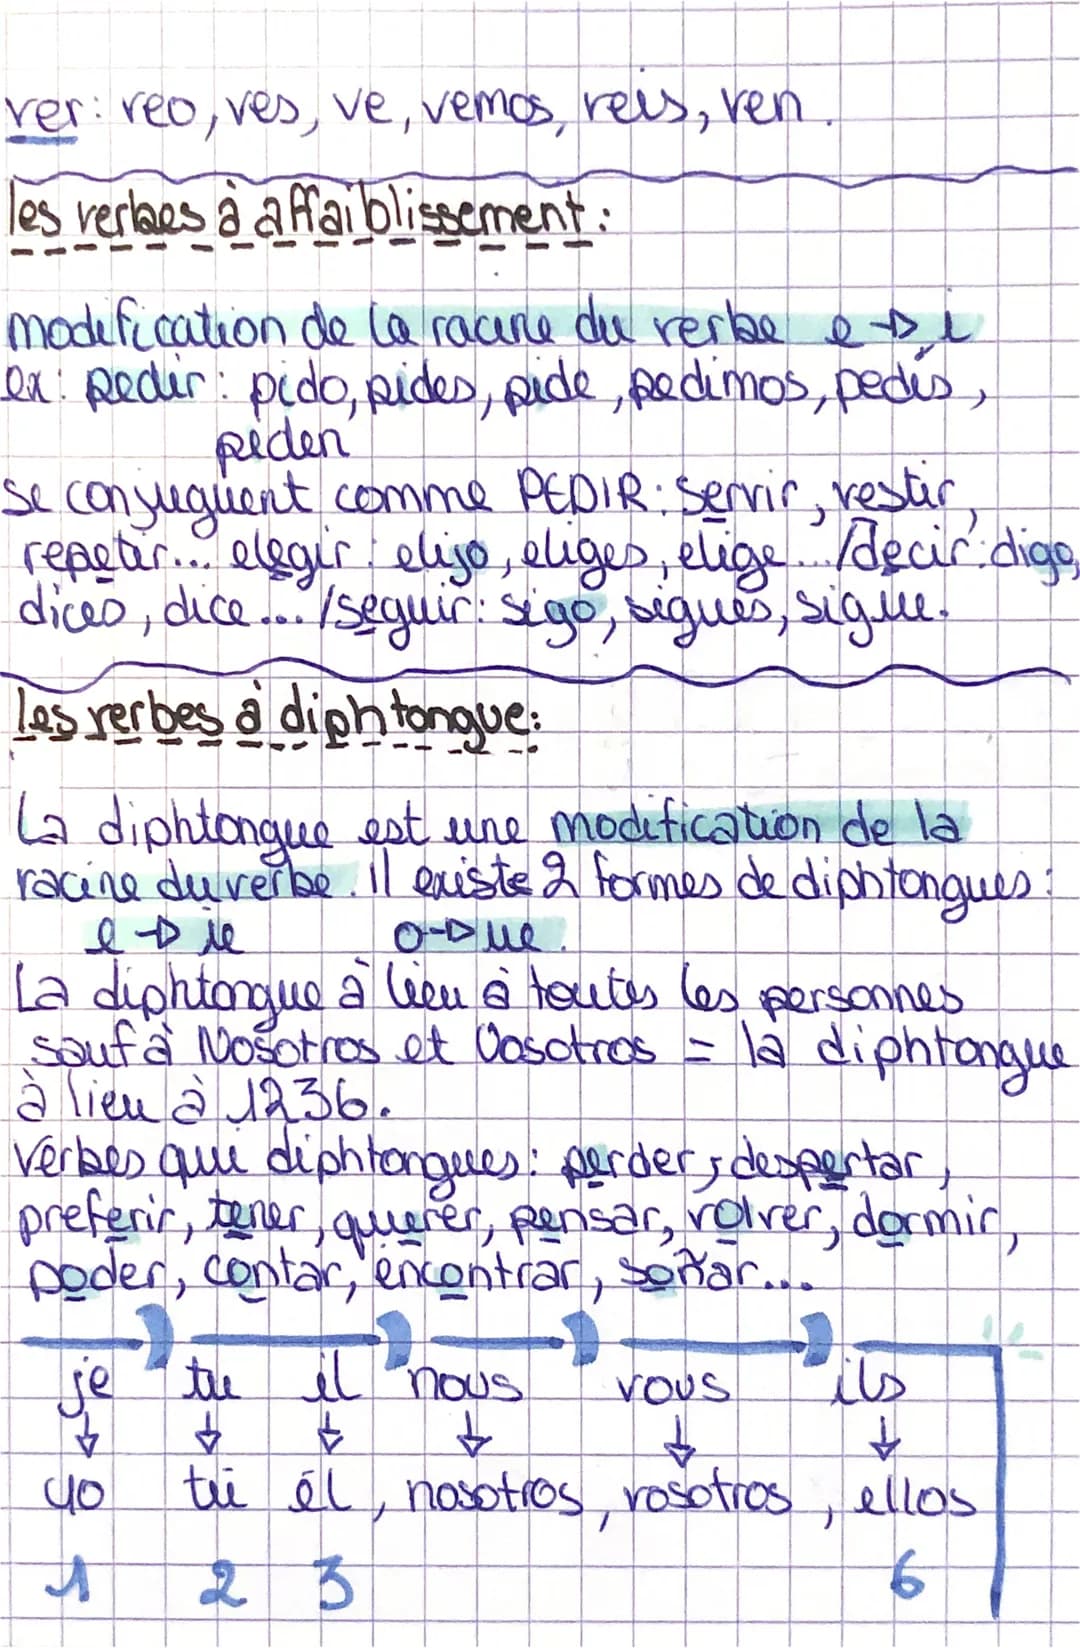 ver: veo, ves, ve, vemos, veis, ven.
les verbes à affaiblissement :
modification de la racine du verbe e → i
ex: pedir : pido, pides, pide, pedimos, pedís,
piden
se conjuguent comme PEDIR : servir, vestir,
repetir... elegir : elijo, eliges, elige... /decir: digo,
dices, dice... /seguir: sigo, sigues, sigue.
les verbes à diphtongue:
La diphtongue est une modification de la
racine du verbe. Il existe 2 formes de diphtongues :
e → ie o → ue.
La diphtongue à lieu à toutes les personnes
sauf à Nosotros et Vosotros = la diphtongue
à lieu à 1236.
Verbes qui diphtongues : perder, despertar,
preferir, tener, querer, pensar, volver, dormir,
poder, contar, encontrar, soñar...
je tu il nous vous ils
↓ ↓ ↓ ↓ ↓ ↓
yo tú él, nosotros, vosotros, ellos
1 2 3 6